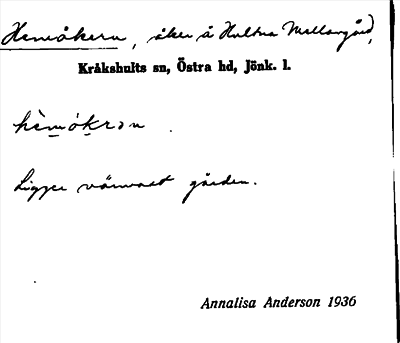 Hemåkern, åker å Hultna Mellangård,
Kråkshults sn, Östra hd, Jönk. l.
hèmókrɔn.
Ligger närmast gården.
Annalisa Anderson 1936